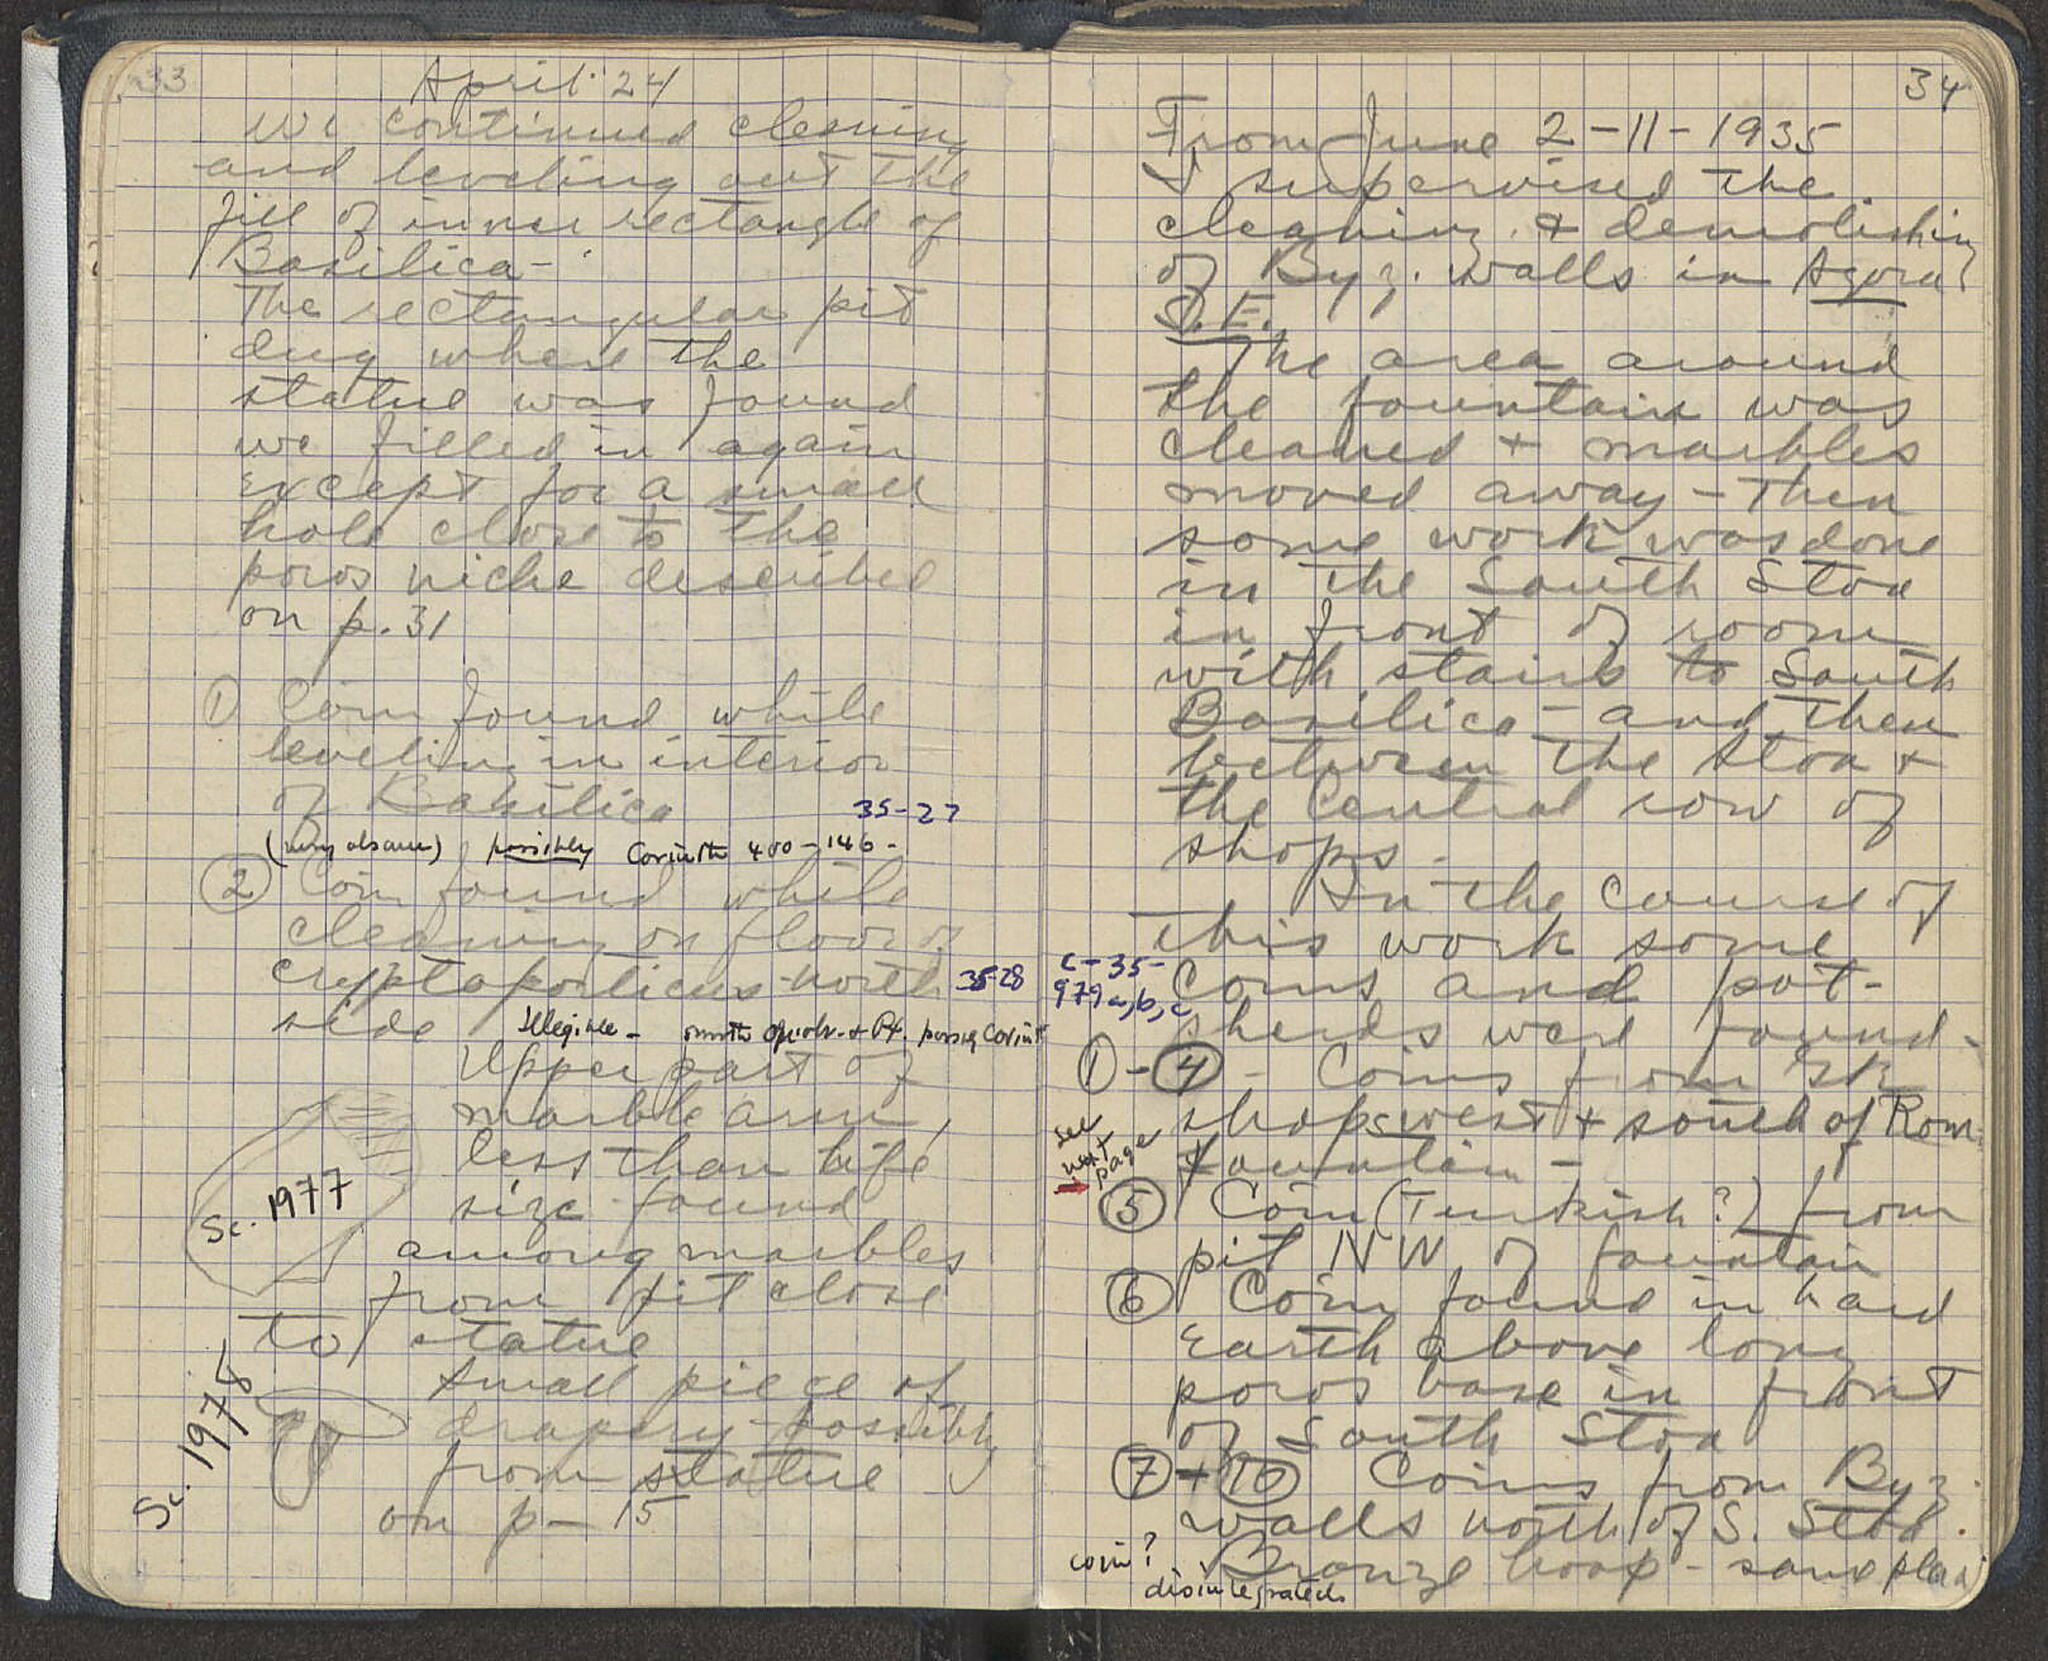 33
April 24
We continued cleaning
and leveling out the
fill of inner rectangle of
Basilica-
The rectangular pit
dug where the
statue was found
we filled in again
except for a small
hole close to the
poros niche described
on p. 31
① Coin found while
leveling in interior
of Basilica 35-27
(very obscure) possibly Corinth 400-146-
② Coin found while
cleaning on floor of
cryptoporticus-north 35-28
side Illegible - Corinth
Upper part of
marble arm,
less than life
size found
Sc. 1977
among marbles
from pit close
to statue
Small piece of
drapery possibly
from statue
on p- 15
Sc. 1978
34
From June 2-11-1935
I supervised the
cleaning & demolishing
of Byz. walls in Agora
S.E.
The area around
the fountain was
cleaned + marbles
moved away - Then
some work was done
in the South Stoa
in front of room
with stairs to South
Basilica - and then
between the Stoa +
the Central row of
shops-
In the course of
this work some
c-35-
979a,b,c
coins and pot-
sherds were found-
①-④- Coins from
shops west + south of Rom.
fountain -
see
next
page
⑤ Coin (Turkish?) from
pit NW of fountain
⑥ Coin found in hard
earth above long
poros base in front
of South Stoa
⑦+⑩ Coins from Byz.
walls north of S. Stoa.
Bronze hoop - same place
coin?
disintegrated